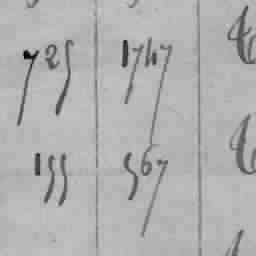 725 1747
155 567